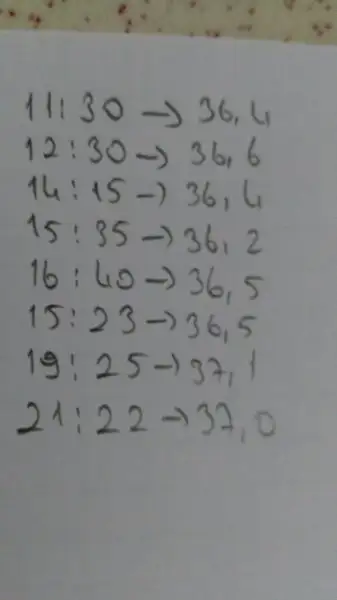 11:30 → 36,4
12:30 → 36,6
14:15 → 36,4
15:35 → 36,2
16:40 → 36,5
15:23 → 36,5
19:25 → 37,1
21:22 → 37,0